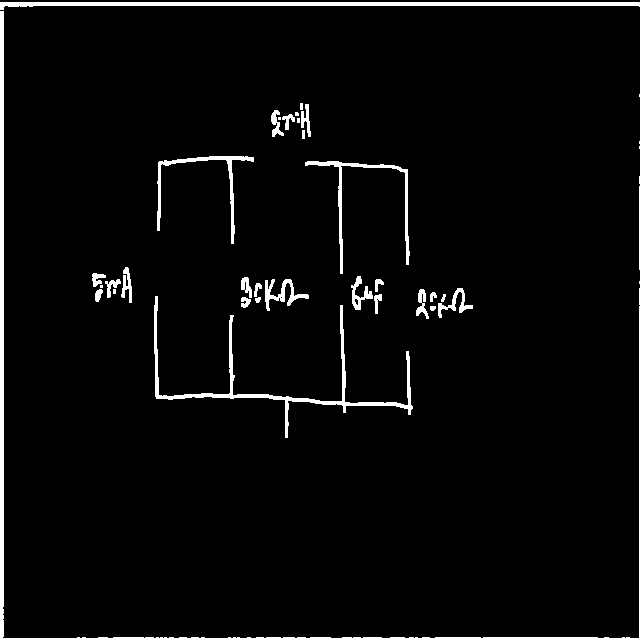 2mH
5mA
30KΩ
6uF
20KΩ